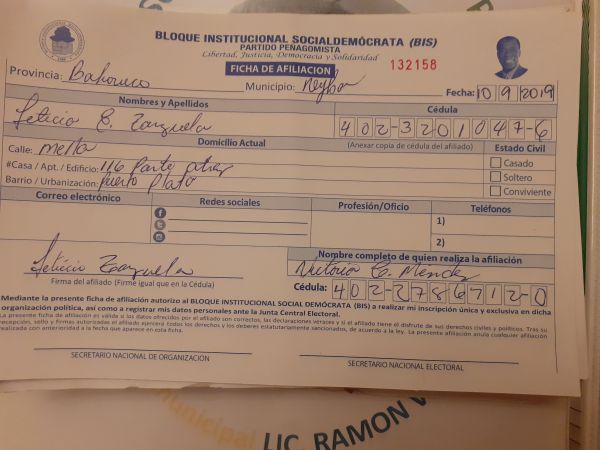 BLOQUE INSTITUCIONAL SOCIALDEMÓCRATA (BIS)
PARTIDO PEÑAGOMISTA
Libertad, Justicia, Democracia y Solidaridad
FICHA DE AFILIACION
132158
Provincia: Bahoruco
Municipio: Neyba
Fecha: 10 9 2019
Nombres y Apellidos
Cédula
Leticia E. Zarzuela
402-3201047-6
Domicilio Actual
(Anexar copia de cédula del afiliado)
Estado Civil
Calle: mella
Casado
#Casa / Apt. / Edificio: 116 parte atras
Soltero
Barrio / Urbanización: Puerto Plata
Conviviente
Correo electrónico
Redes sociales
Profesión/Oficio
Teléfonos
1)
2)
Leticia Zarzuela
Nombre completo de quien realiza la afiliación
Victoria C. Méndez
Firma del afiliado (Firme igual que en la Cédula)
Cédula: 402-2786712-0
Mediante la presente ficha de afiliación autorizo al BLOQUE INSTITUCIONAL SOCIAL DEMÓCRATA (BIS) a realizar mi inscripción única y exclusiva en dicha
organización política, así como a registrar mis datos personales ante la Junta Central Electoral.
La presente ficha de afiliación es válida si los datos ofrecidos por el afiliado son correctos, las declaraciones veraces y si el afiliado tiene el disfrute de sus derechos civiles y políticos. Tras su
recepción, sello y firmas autorizadas el afiliado ejercerá todos los derechos y los deberes estatutariamente sancionados, de acuerdo a la ley. La presente afiliación anula cualquier afiliación
realizada con anterioridad a la fecha que aparece en esta ficha.
SECRETARIO NACIONAL DE ORGANIZACIÓN
SECRETARIO NACIONAL ELECTORAL
municipal LIC. RAMON